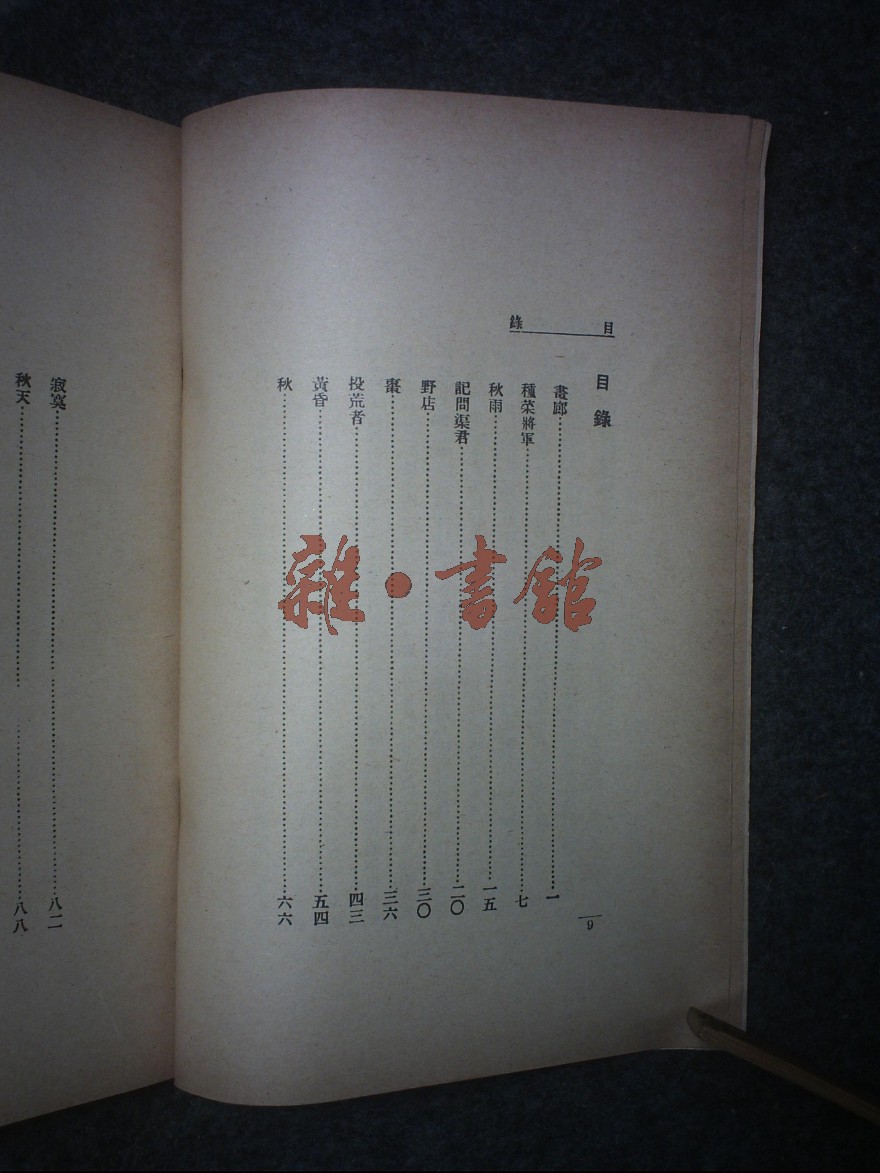 目錄
目錄
畫廊……一
種菜將軍……七
秋雨……一五
記問渠君……二〇
野店……三〇
棗……三六
投荒者……四三
黃昏……五四
秋……六六
9
寂寞……八二
秋天……八八
雜·書館